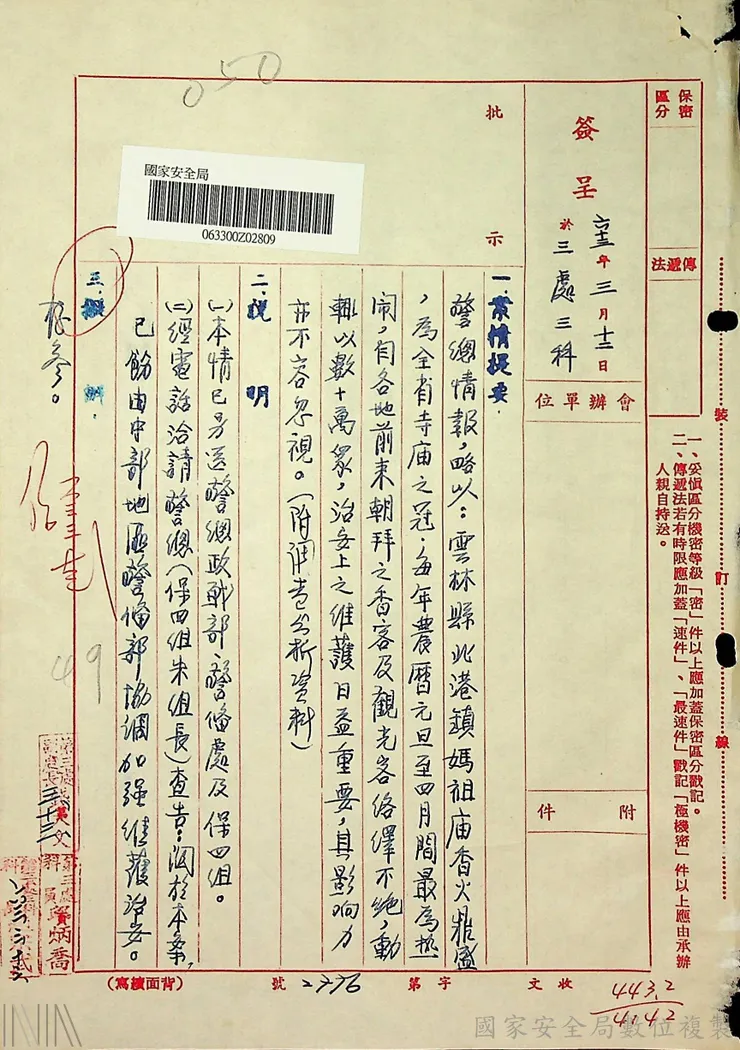 050
保密區分
傳遞法
簽呈
六十三年三月十三日
於三處三科
會辦單位
附件
批示
國家安全局
063300Z02809
一、案情提要
警總情報，略以：雲林縣北港鎮媽祖庙香火鼎盛
，為全省寺庙之冠，每年農曆元旦至四月間最為热
闹，自各地前来朝拜之香客及觀光客络繹不絶，動
輒以數十萬众，治安上之维護日益重要，其影响力
亦不容忽視。（附調查分析資料）
二、說明
㈠本情已另送警總政戰部、警備處及保四组。
㈡經電話洽請警總（保四组朱组長）查告：関於本案，
已飭由中部地區警備部協調加強维護治安。
三、擬辦
存参。
49
一、妥慎區分機密等級「密」件以上應加蓋保密區分戳記。
二、傳遞法若有時限應加蓋「速件」、「最速件」戳記「極機密」件以上應由承辦
人親自持送。
裝
訂
線
收文
字第
2776
號
（背面續寫）
443.2
4142
國家安全局數位複製